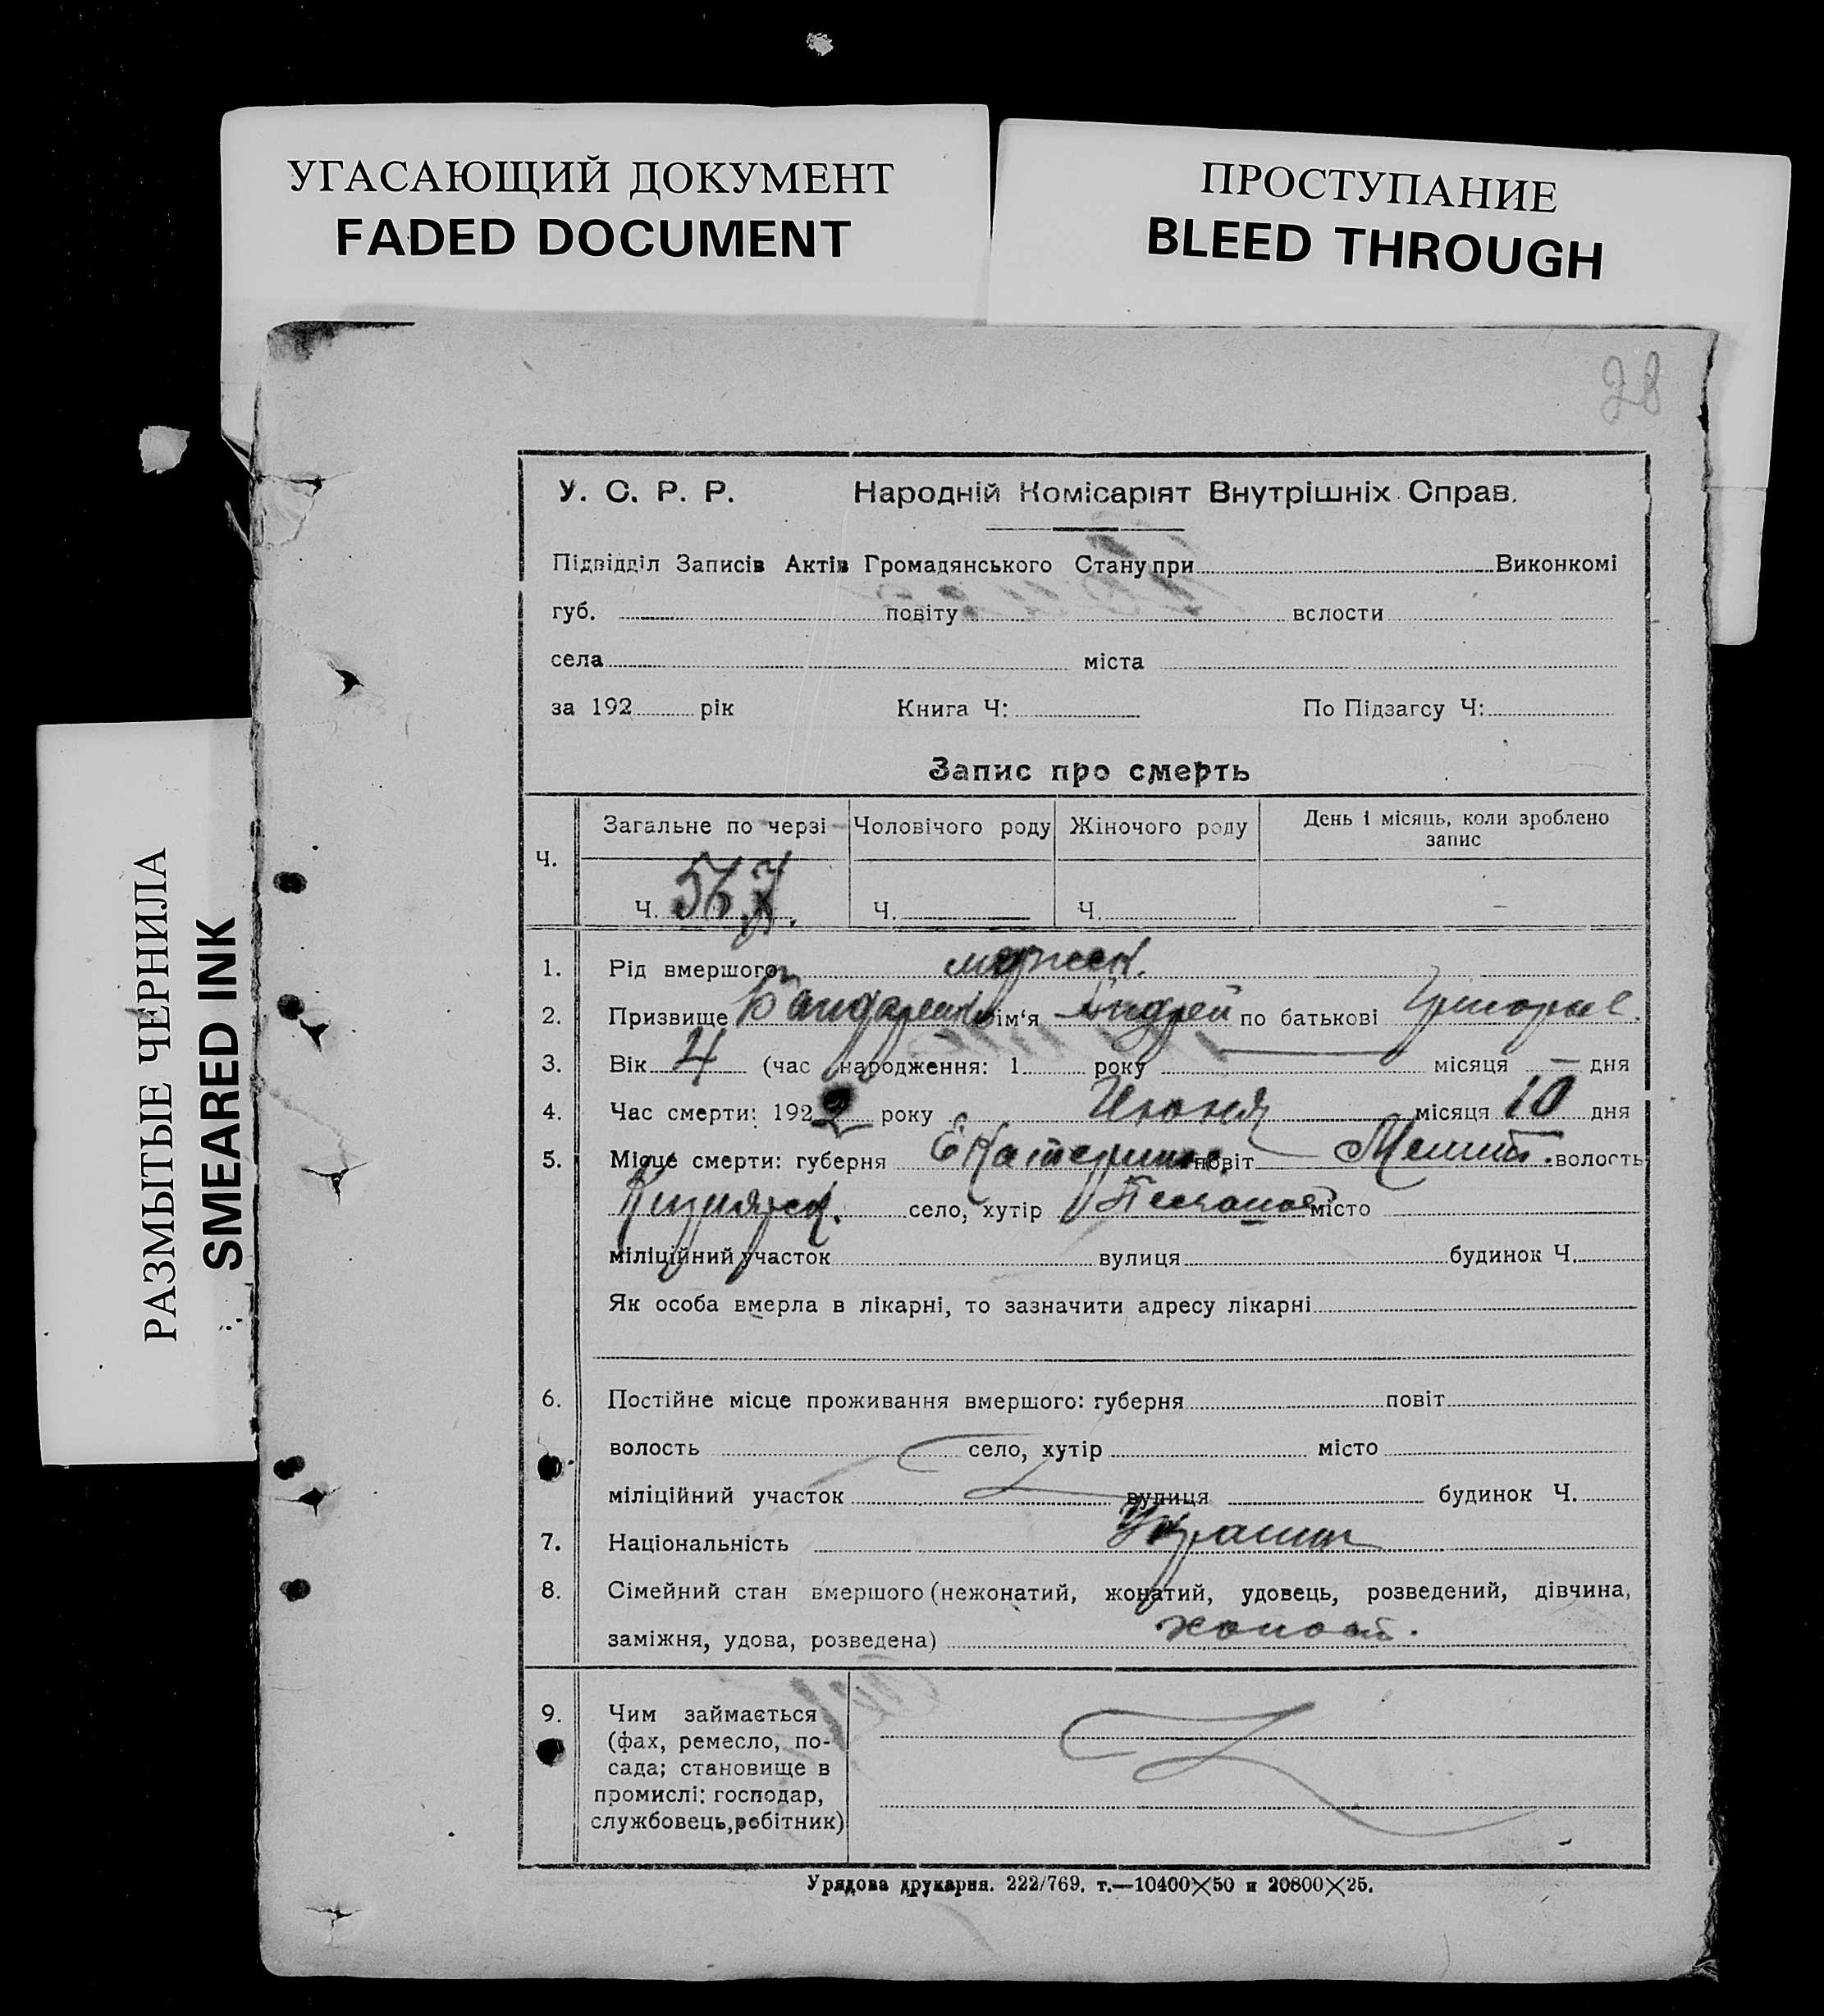 УГАСАЮЩИЙ ДОКУМЕНТ
FADED DOCUMENT
ПРОСТУПАНИЕ
BLEED THROUGH
РАЗМЫТЫЕ ЧЕРНИЛА
SMEARED INK
28
У. С. Р. Р. Народній Комісаріят Внутрішніх Справ.
Підвідділ Записів Актів Громадянського Стану при Виконкомі
губ. повіту вслости
села міста
за 192 рік Книга Ч: По Підзагсу Ч:
Запис про смерть
Загальне по черзі Чоловічого роду Жіночого роду День і місяць, коли зроблено
запис
Ч.
Ч. 567. Ч. Ч. –
1. Рід вмершого мужск.
2. Призвище Бандаренко ім‘я Андрей по батькові Григорье.
3. Вік 4 (час народження: 1 року місяця — дня
4. Час смерти: 1922 року Июня місяця 10 дня
5. Місце смерти: губерня Екатерин. повіт Мелит. волость
Кизиярск. село, хутір Песчаное місто
міліційний участок вулиця будинок Ч.
Як особа вмерла в лікарні, то зазначити адресу лікарні
6. Постійне місце проживання вмершого: губерня повіт
волость село, хутір місто
міліційний участок вулиця будинок Ч.
7. Національність Украин
8. Сімейний стан вмершого (нежонатий, жонатий, удовець, розведений, дівчина,
заміжня, удова, розведена) холост.
9. Чим займається
(фах, ремесло, по-
сада; становище в
промислі: господар,
службовець, робітник)
Урядова друкарня. 222/769. т.—10400×50 и 20800×25.